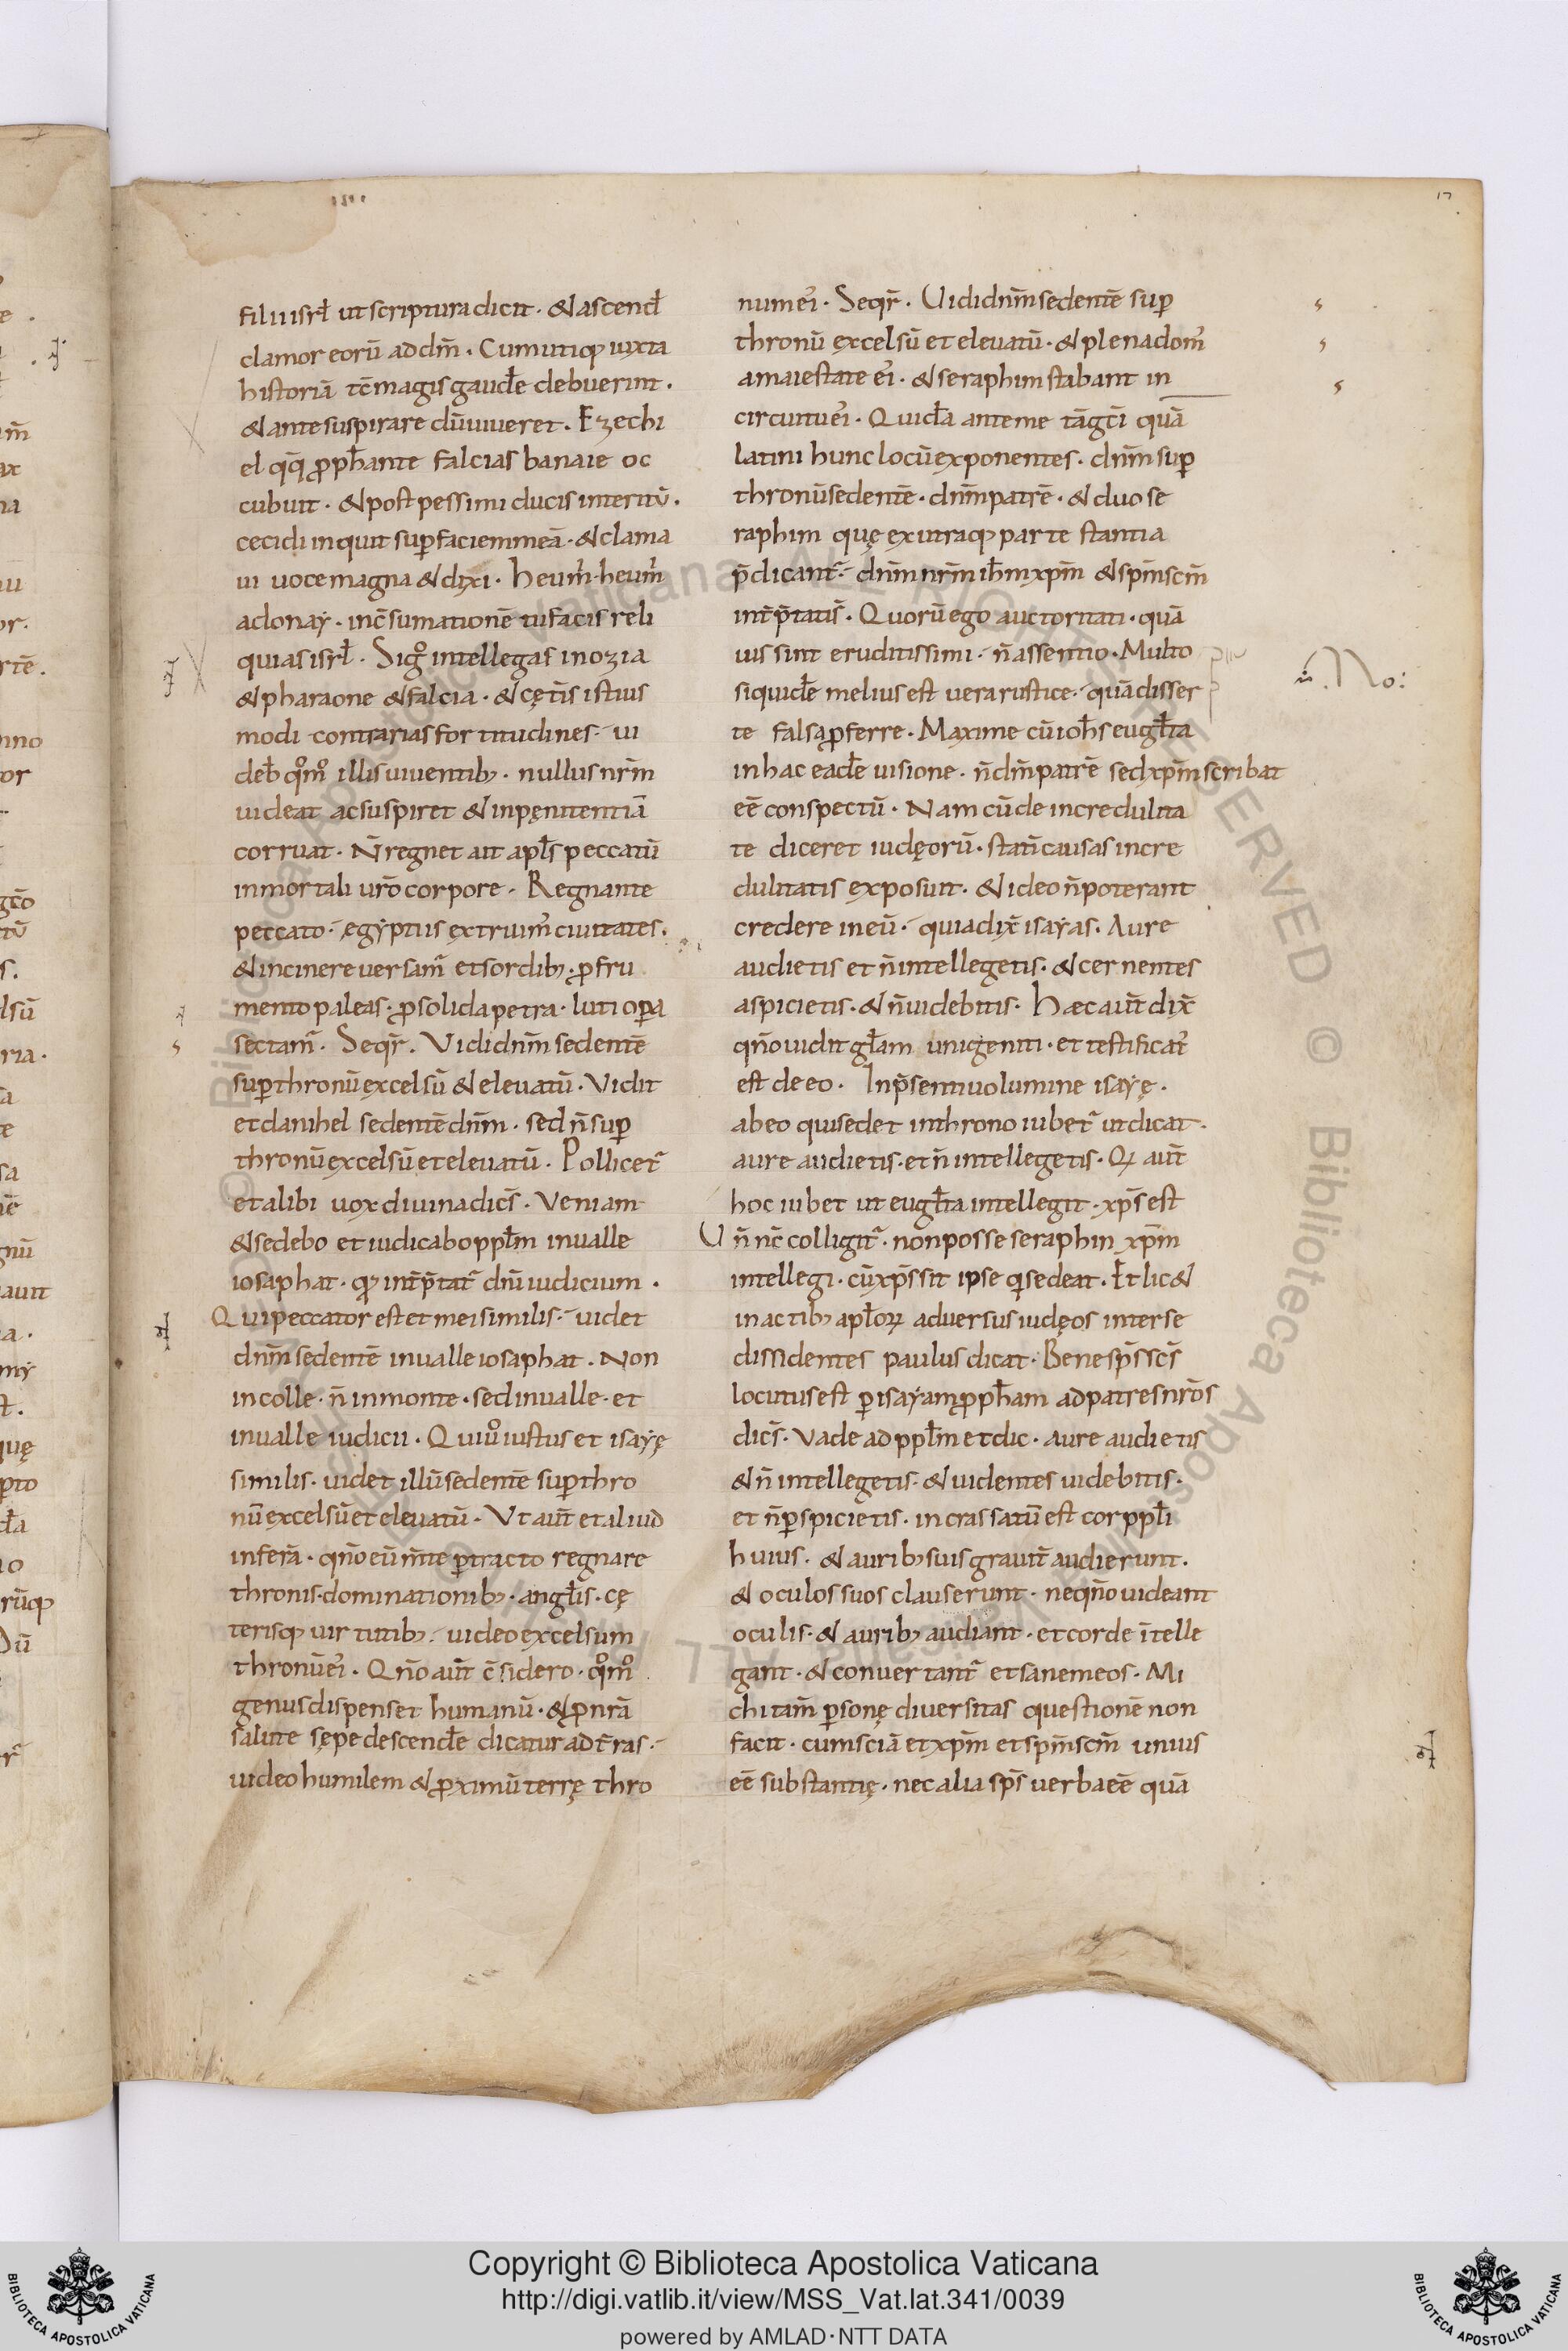 17
filii isrł ut scriptura dicit · & ascend̄
clamor eorū ad dm̄ . Cum utiq; iuxta
historiā tc̄ magis gaudēe debuerint .
& ante suspirare dū uiueret . Ezechi
el qq; ꝓph̄ante falcias banaie oc
cubuit . & post pessimi ducis interitū .
cecidi inquit suꝑ faciem meā . & clama
ui uoce magna & dixi . heum̄ heum̄
adonay . in c̄sumationē tu facis reli
quias isrł . Sic gͦ intellegas in ozia
& pharaone & falcia . & cęt̄is istius
modi contrarias fortitudines . ui
deb qͦmͦ illis uiuentib; . nullus nrm̄
uideat ac suspiret & in pęnitentiā
corruat . N̄ regnet ait apl̄s peccatū
in mortali ur̄o corpore . Regnante
peccato . ęgyptiis extruim̄ ciuitates .
& in cinere uersam̄ et sordib; . ꝓ fru
mento paleas . ꝓ solida petra . luti oꝑa
sectam̄ . Seqr̄ . Vidi dnm̄ sedentē
suꝑ thronū excelsū & eleuatū . Vidit
et danihel sedentē dnm̄ . sed n̄ suꝑ
thronū excelsū et eleuatū . Pollicet̄
et alibi uox diuina dics̄ . Veniam
& sedebo et iudicabo ppl̄m in ualle
iosaphat . qd int̄p̄tat̄ dn̄i iudicium .
Qui peccator est et mei similis . uidet
dnm̄ sedentē in ualle iosaphat . Non
in colle . n̄ in monte . sed in ualle . et
in ualle iudicii . Qui uͦ iustus et isayę
similis . uidet illū sedentē suꝑ thro
nū excelsū et eleuatū . Vt aut̄ et aliud
inferā . qn̄o eū m̄te ꝑtracto regnare
thronis . dominationib; . angl̄is . cę
terisq; uirtutib; . uideo excelsum
thronū ei᾽ . Qn̄o aut̄ c̄sidero . qͦmͦ
genus dispenset humanū . & ꝓ nrā
salute sępe descendēe dicatur ad t̄ras .
uideo humilem & ꝓximū terrę thro
num ei᾽ . Seqr̄ . Uidi dnm̄ sedentē suꝑ
thronū excelsū et eleuatū . & plena dom᾽
a maiestate ei᾽ . & seraphim stabant in
circuitu ei᾽ . Quidā ante me tā gc̄i quā
latini hunc locū exponentes . dnm̄ suꝑ
thronū sedentē . dnm̄ patrē . & duo se
raphim quę ex utraq; parte stantia
p̄dicant̄ . dnm̄ nrm̄ ihm̄ xpm̄ & spm̄ scm̄
int̄p̄tati s̄ . Quorū ego auctoritati . quā
uis sint eruditissimi . n̄ assentio . Multo
siquidē melius est uera rustice . quā disser
te falsa ꝓferre . Maxime cū ioh̄s eugl̄ta
in hac eadē uisione . n̄ dm̄ patrē sed xpm̄ scribat
eē conspectū . Nam cū de incredulita
te diceret iudęorū . statī causas incre
dulitatis exposuit . & ideo n̄ poterant
credere in eū . quia dix̄ isayas . Aure
audietis et n̄ intellegetis . & cernentes
aspicietis . & n̄ uidebitis . Hæc aut̄ dix̄
qn̄o uidit gl̄am unigeniti . et testificat᾽
est de eo . In p̄senti uolumine isayę .
ab eo qui sedet in throno iubet̄ ut dicat .
aure audietis . et n̄ intellegetis . Qd aut̄
hoc iubet ut eugl̄ta intellegit . xps̄ est
Vn̄ nc̄ colligit̄ . non posse seraphin xpm̄
intellegi . cū xps̄ sit ipse qi sedeat . Et lic&
in actib; apl̄oꝝ aduersus iudęos inter se
dissidentes paulus dicat . Bene sps̄ scs̄
locutus est ꝑ isayam ꝓph̄am ad patres nr̄os
dics̄ . Vade ad ppl̄m et dic . Aure audietis
& n̄ intellegetis . & uidentes uidebitis .
et n̄ ꝑspicietis . incrassatū est cor ppl̄i
huius . & aurib; suis grauit̄ audierunt .
& oculos suos clauserunt . ne qn̄o uideant
oculis . & aurib; audiant . et corde ītelle
gant . & conuertant̄ et sanem eos . Mi
chi tam̄ ꝑsonę diuersitas questionē non
facit . cum sciā et xpm̄ et spm̄ scm̄ unius
eē substantię . nec alia sps̄ uerba eē quā
No:
© Biblioteca Apostolica Vaticana ALL RIGHTS RESERVED
Copyright © Biblioteca Apostolica Vaticana
http://digi.vatlib.it/view/MSS_Vat.lat.341/0039
powered by AMLAD·NTT DATA
BIBLIOTECA APOSTOLICA VATICANA
BIBLIOTECA APOSTOLICA VATICANA